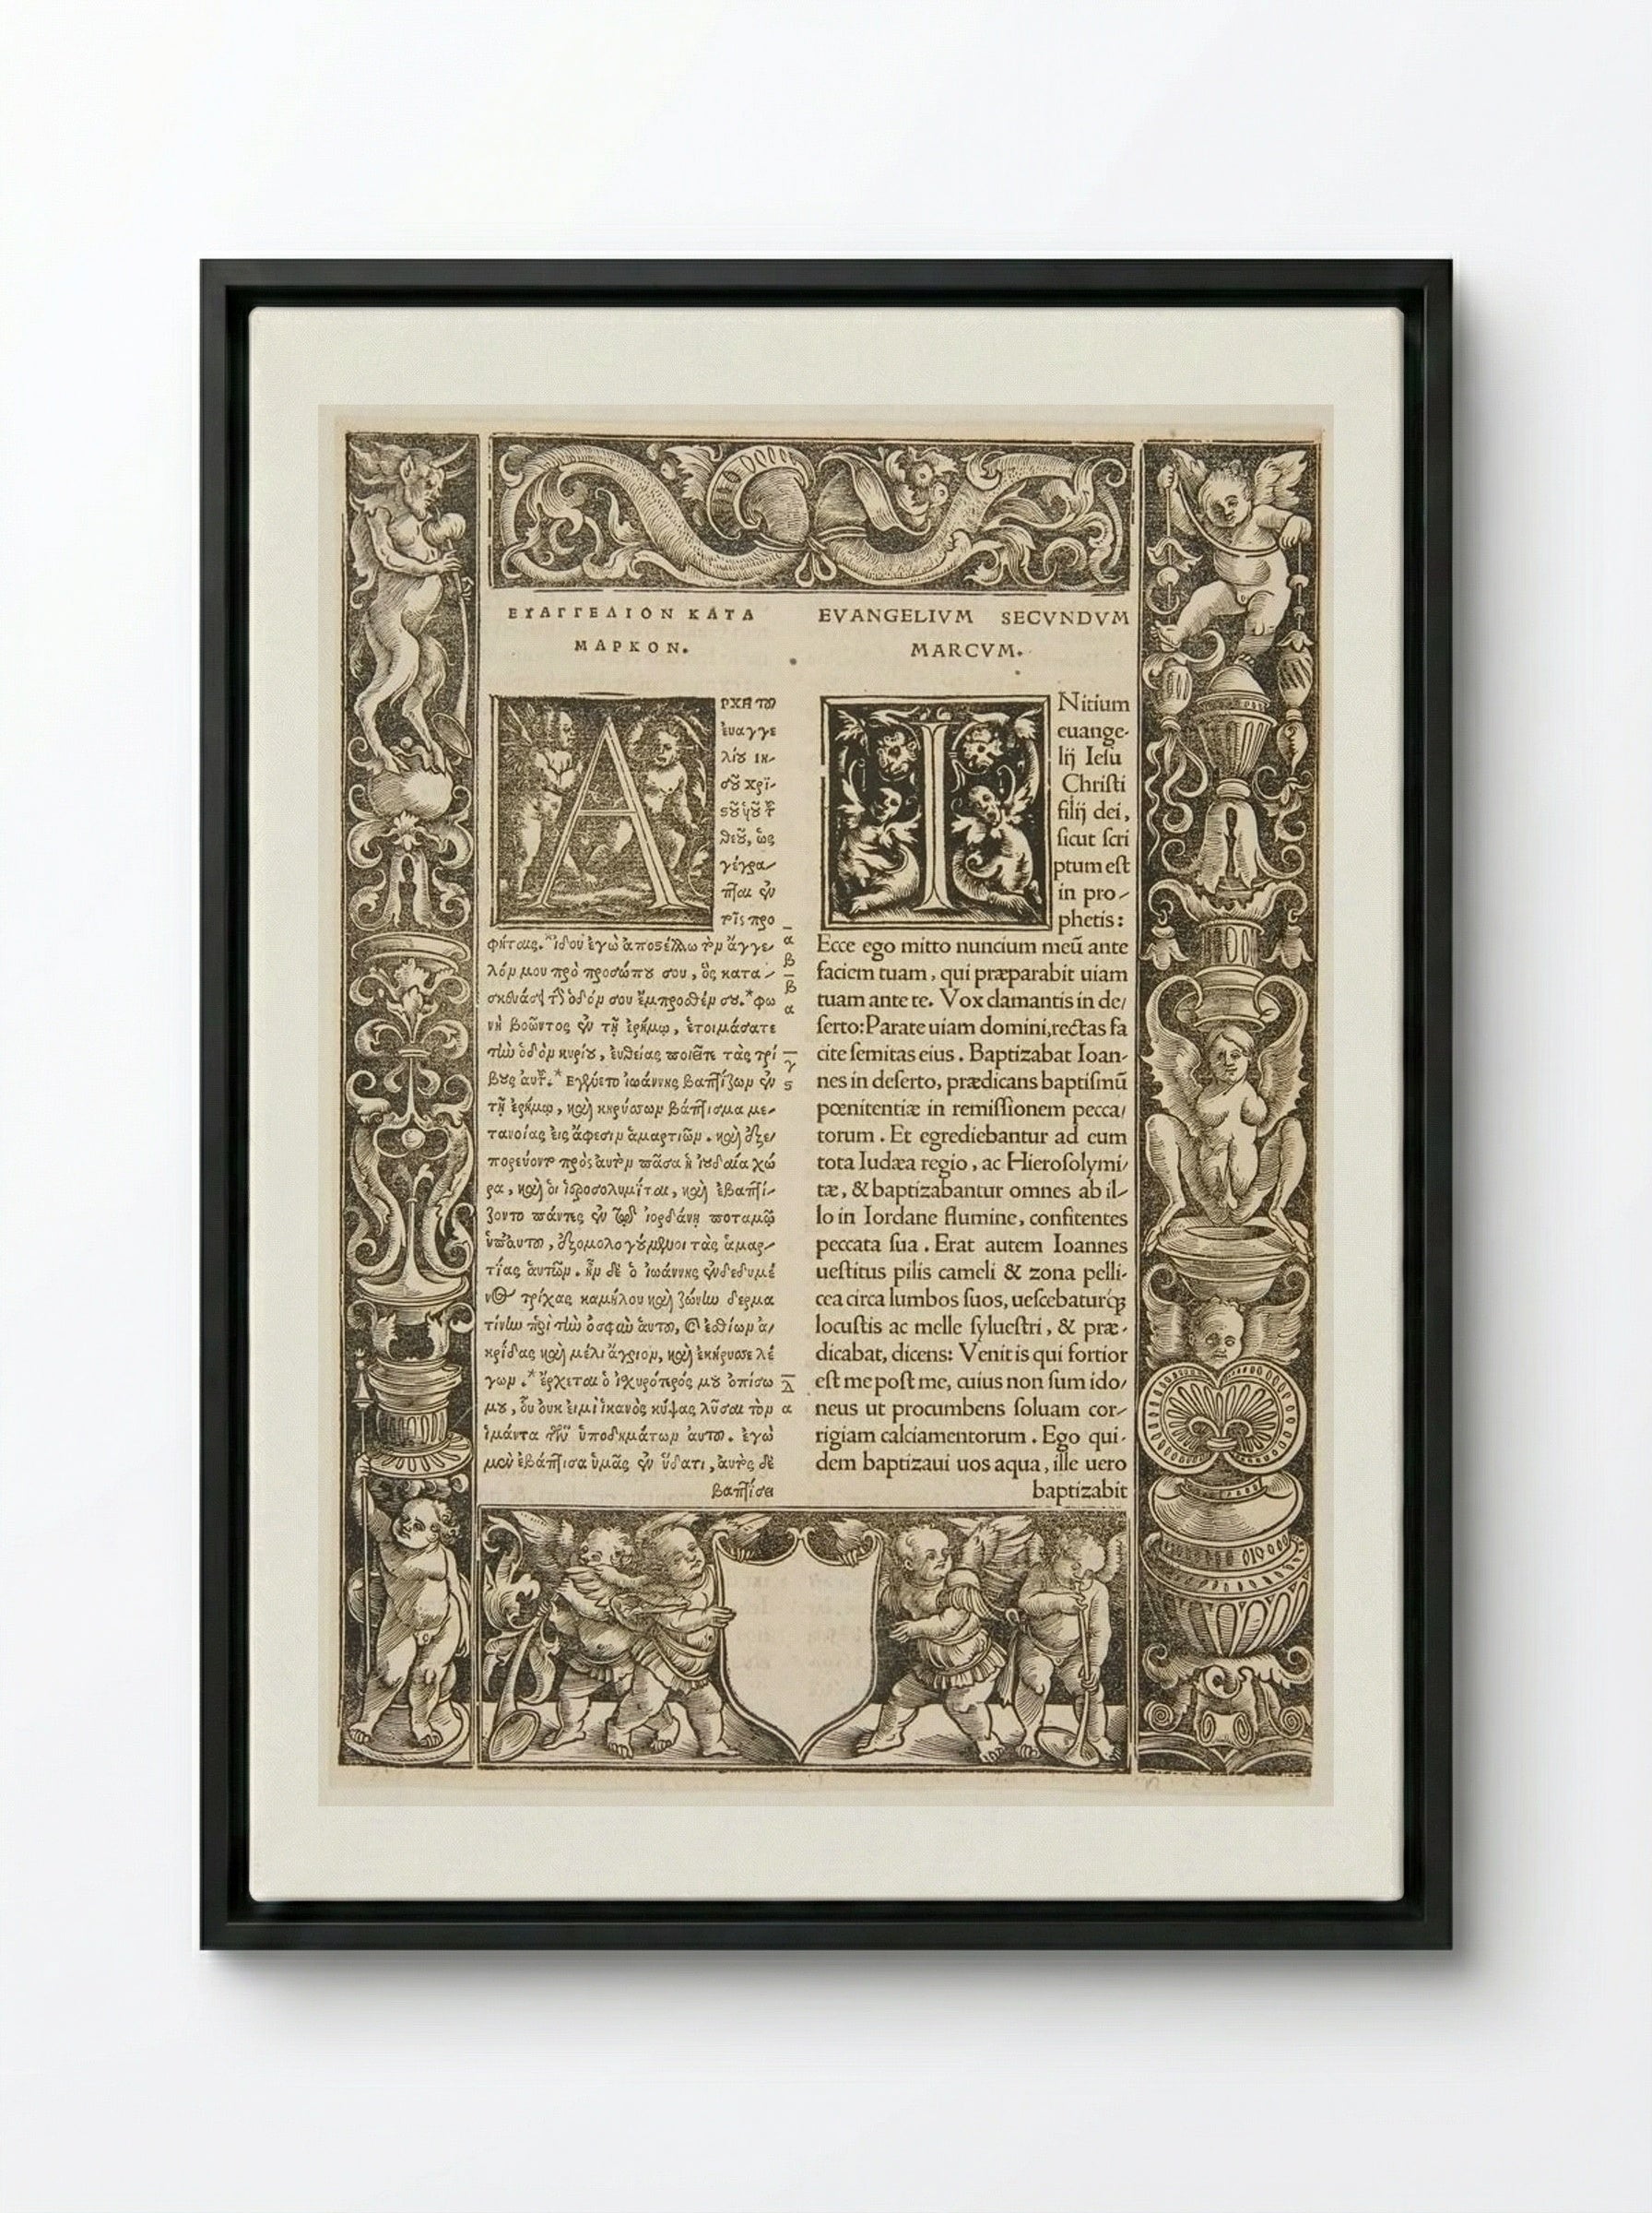 ΕΥΑΓΓΕΛΙΟΝ ΚΑΤΑ
ΜΑΡΚΟΝ.
ΑΡΧΗ τοῦ
ἐυαγγε
λίου ιη-
σοῦ χρι-
στοῦ ὑοῦ τ
θεοῦ, ὡς
γέγρα-
πται ἐν
τοῖς προ
φήταις.*ἰδου ἐγὼ ἀποστέλλω τὸν ἄγγε-
λόν μου πρὸ προσώπου σου, ὃς κατα-
σκευάσει τὴν ὁδόν σου ἔμπροσθέν σου.*φω
νὴ βοῶντος ἐν τῇ ἐρήμῳ, ἑτοιμάσατε
τὴν ὁδὸν κυρίου, ἐυθείας ποιεῖτε τὰς τρί
βους αυτοῦ.* Εγένετο ἰωάννης βαπτίζων ἐν
τῇ ἐρήμῳ, καὶ κηρύσσων βάπτισμα με-
τανοίας εἰς ἄφεσιν ἁμαρτιῶν. καὶ ἐξε
πορεύοντο πρὸς αυτὸν πᾶσα ἡ ἰουδαία χώ
ρα, καὶ ὁι ἱεροσολυμῖται, καὶ ἐβαπτί-
ζοντο πάντες ἐν τῷ ἰορδάνῃ ποταμῷ
ὑπ᾽ἀυτοῦ, ἐξομολογούμενοι τὰς ἁμαρ-
τίας ἀυτῶν. ἦν δὲ ὁ ἰωάννης ἐνδεδυμέ
νος τρίχας καμήλου καὶ ζώνην δερμα
τίνην περὶ τὴν ὀσφὺν ἀυτοῦ, καὶ ἐσθίων ἀ
κρίδας καὶ μέλι ἄγριον, καὶ ἐκήρυσσε λέ
γων.*ἔρχεται ὁ ἰχυρότερός μου ὀπίσω
μου, ὃυ ὀυκ ειμὶ ἱκανὸς κύψας λῦσαι τὸν
ἱμάντα τῶν ὑποδημάτων ἀυτοῦ. ἐγὼ
μὲν ἐβάπτισα ὑμᾶς ἐν ὕδατι, ἀυτὸς δὲ
βαπτίσει
EVANGELIVM SECVNDVM
MARCVM.
INitium
euange-
lij Ieſu
Chriſti
filij dei,
ſicut ſcri
ptum eſt
in pro-
phetis:
Ecce ego mitto nuncium meū ante
faciem tuam, qui præparabit uiam
tuam ante te. Vox clamantis in de/
ſerto: Parate uiam domini, rectas fa
cite ſemitas eius. Baptizabat Ioan-
nes in deſerto, prædicans baptiſmū
pœnitentiæ in remiſſionem pecca/
torum. Et egrediebantur ad eum
tota Iudæa regio, ac Hieroſolymi/
tæ, & baptizabantur omnes ab il-
lo in Iordane flumine, confitentes
peccata ſua. Erat autem Ioannes
ueſtitus pilis cameli & zona pelli-
cea circa lumbos ſuos, ueſcebaturq́;
locuſtis ac melle ſylueſtri, & præ-
dicabat, dicens: Venit is qui fortior
eſt me poſt me, cuius non ſum ido/
neus ut procumbens ſoluam cor-
rigiam calciamentorum. Ego qui-
dem baptizaui uos aqua, ille uero
baptizabit